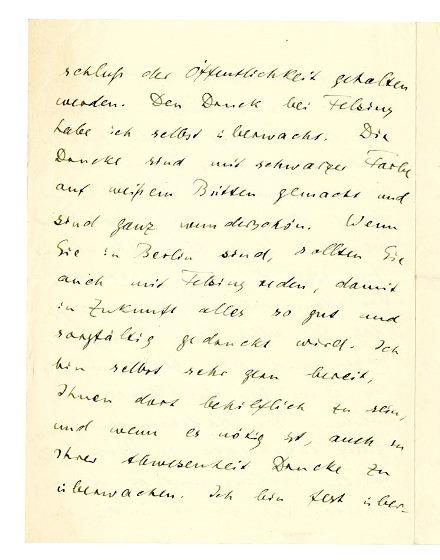 schluß der Öffentlichkeit gehalten
werden. Den Druck bei Felsing
habe ich selbst überwacht. Die
Drucke sind mit schwarzer Farbe
auf weißem Bütten gemacht und
sind ganz wunderschön. Wenn
Sie in Berlin sind, sollten Sie
auch mit Felsing reden, damit
in Zukunft alles so gut und
sorgfältig gedruckt wird. Ich
bin selbst sehr gern bereit,
Ihnen dort behilflich zu sein,
und wenn es nötig ist, auch in
Ihrer Abwesenheit Drucke zu
überwachen. Ich bin fest über-